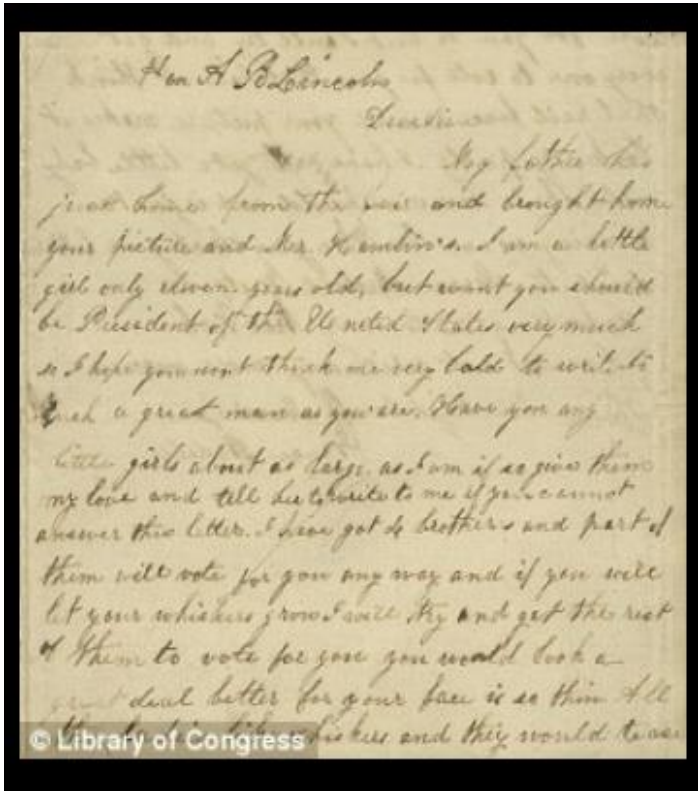 Hon A B Lincoln
Dear Sir
My father has
just home from the fair and brought home
your picture and Mr. Hamlin's. I am a little
girl only eleven years old, but want you should
be President of the United States very much
so I hope you wont think me very bold to write to
such a great man as you are. Have you any
little girls about as large as I am if so give them
my love and tell her to write to me if you cannot
answer this letter. I have got 4 brothers and part of
them will vote for you any way and if you will
let your whiskers grow I will try and get the rest
of them to vote for you you would look a
great deal better for your face is so thin All
the ladies like whiskers and they would tease
© Library of Congress